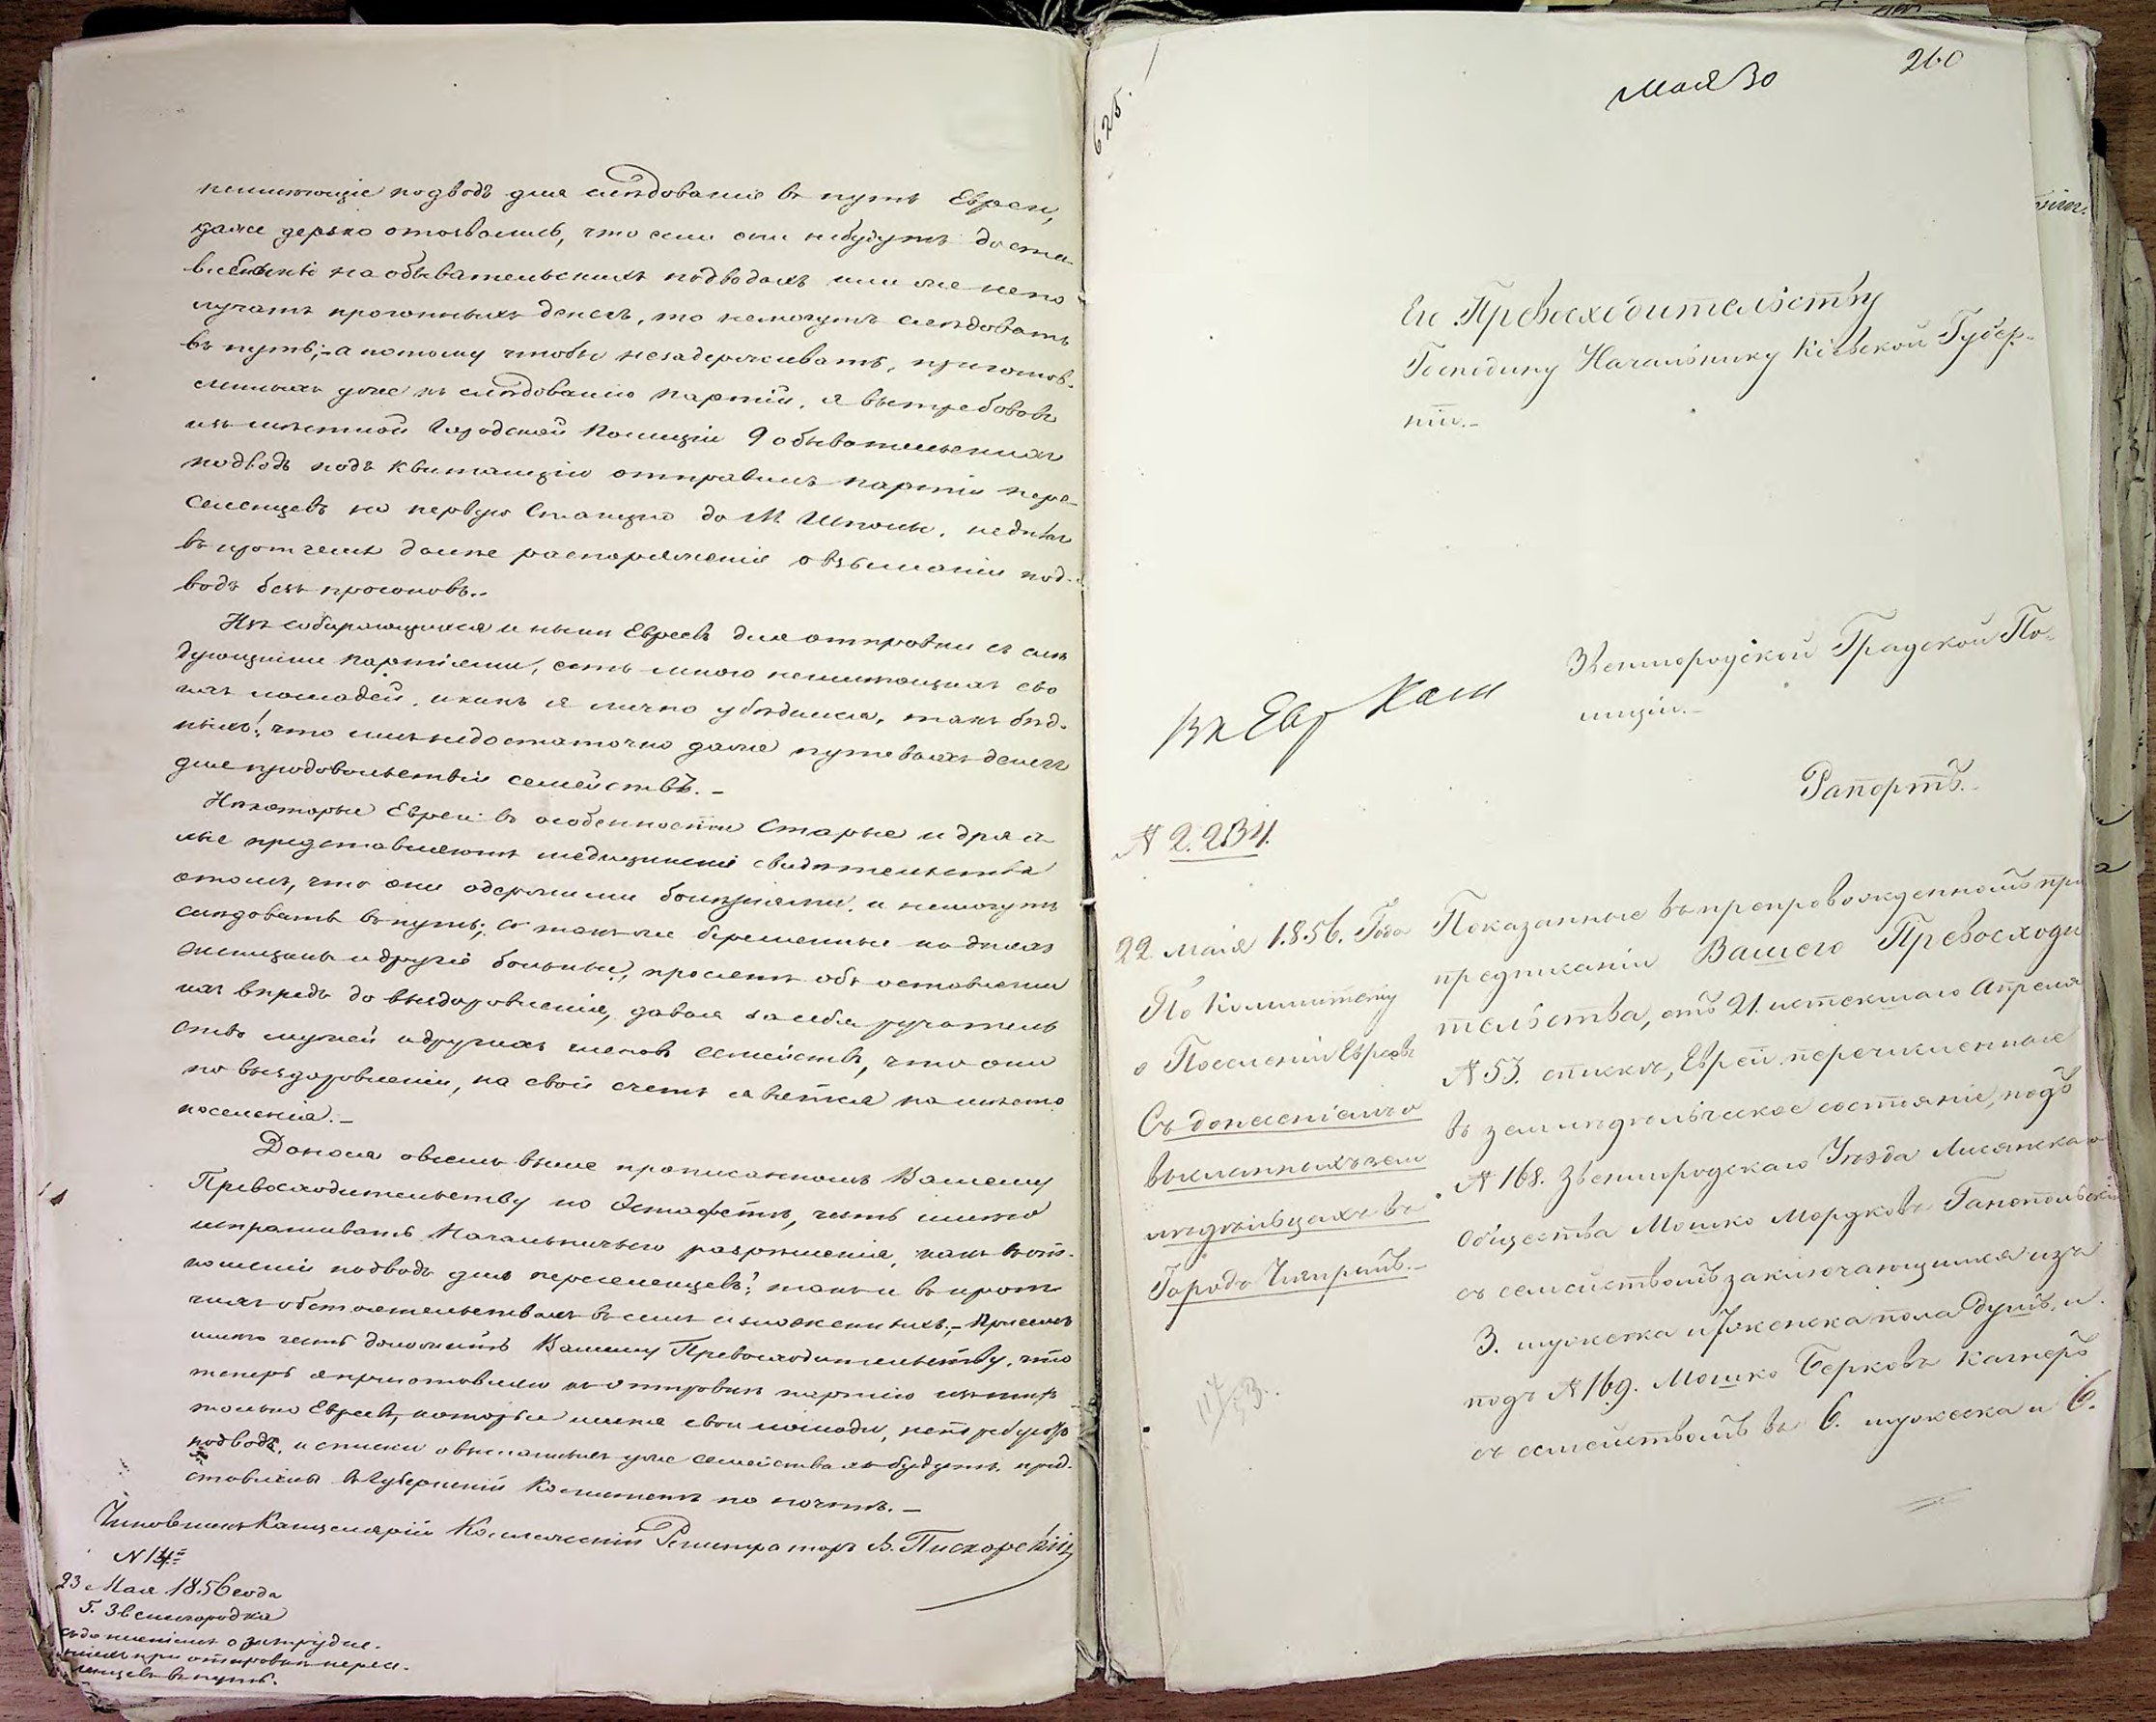 неимѣющіе подводъ для слѣдованія въ путь Евреи,
даже дерзко отозвались, что если они небудутъ доста-
влены на обывательскихъ подводахъ или же непо-
лучатъ прогонныхъ денегъ, то немогутъ слѣдовать
въ путь; - а потому чтобы незадерживать, приготов-
ленныхъ уже къ слѣдованію партіи, я вытребовавъ
изъ мѣстной Городской Полиціи 9 обывательскихъ
подводъ подъ квитанцію отправилъ партію пере-
селенцевъ на первую Станцію до М. Шполы, недѣлая
въ протчемъ далѣе распоряженія о взыманіи под-
водъ безъ прогоновъ..
Изъ собирающихся и нынѣ Евреевъ для отправки съ слѣ
дующими партіями, есть много неимѣющихъ сво
ихъ лошадей, и какъ я лично убѣдился, такъ бѣд-
ныхъ! что имъ недостаточно даже путевыхъ денегъ
для продовольствія семействъ. -
Нѣкоторые Евреи въ особенности Старые и дрях
лые представляютъ медицинскія свидѣтельства
отомъ, что они одержимы болѣзнями, и немогутъ
слѣдовать въ путь; а также беременные на дняхъ
женщины и другіе больные, просятъ объ оставленіи
ихъ впредь до выздоровленія, давая за себя ручатель
ство мужей и другихъ членовъ семействъ, что они
по выздоровленіи, на свой счетъ явятся на мѣсто
поселенія. -
Донося овсемъ выше прописанномъ Вашему
Превосходительству по Эстафетѣ, честь имѣю
испрашивать Начальничьего разрѣшенія, какъ въ от-
ношеніи подводъ для переселенцевъ; такъ и въ проти
чихъ обстоятельствахъ въ семъ изложенныхъ. - При семъ
имѣю честь доложить Вашему Превосходительству, что
теперь я приготовляю къ отправкѣ партію изъ тѣхъ
только Евреевъ, которые имѣя свои лошади, нетребуютъ
подводъ, и списки о высланныхъ уже семействахъ будутъ пред-
ставлены въ Губернскій Комитетъ по почтѣ. -
Чиновникъ Канцеляріи Коллежскій Регистраторъ В. Пискорскій
N 14
23 Мая 1856 года
Г. Звенигородка
съ донесеніемъ о затрудне-
ніяхъ при отправкѣ пересе-
ленцевъ въ путь.
625.
Мая 30
260
Его Превосходительству
Господину Начальнику Кіевской Губер-
ніи. -
Въ Евр Ком
Звенигородской Градской По-
лиціи. -
Рапортъ. -
№ 2.234.
22 Маія 1856. Года
По Коммитету
о Поселеніи Евреевъ
Съ донесеніемъ о
высланныхъ зем
ледѣльцахъ въ
Городъ Чигиринъ. -
Показанные въ препровожденномъ при
предписаніи Вашего Превосходи
тельства, отъ 21. истекшаго Апреля
№ 53. спискѣ, Евреи перечисленные
въ земледѣльческое состояніе, подъ
№ 168. Звенигородскаго Уѣзда Лисянскаго
Общества Мошко Мордковъ Ганопольскій
съ семействомъ заключающимся изъ
3. мужеска и 7 женска пола душъ, и
подъ № 169. Мошко Берковъ Кагнеръ
съ семействомъ въ 6. мужеска и 6.